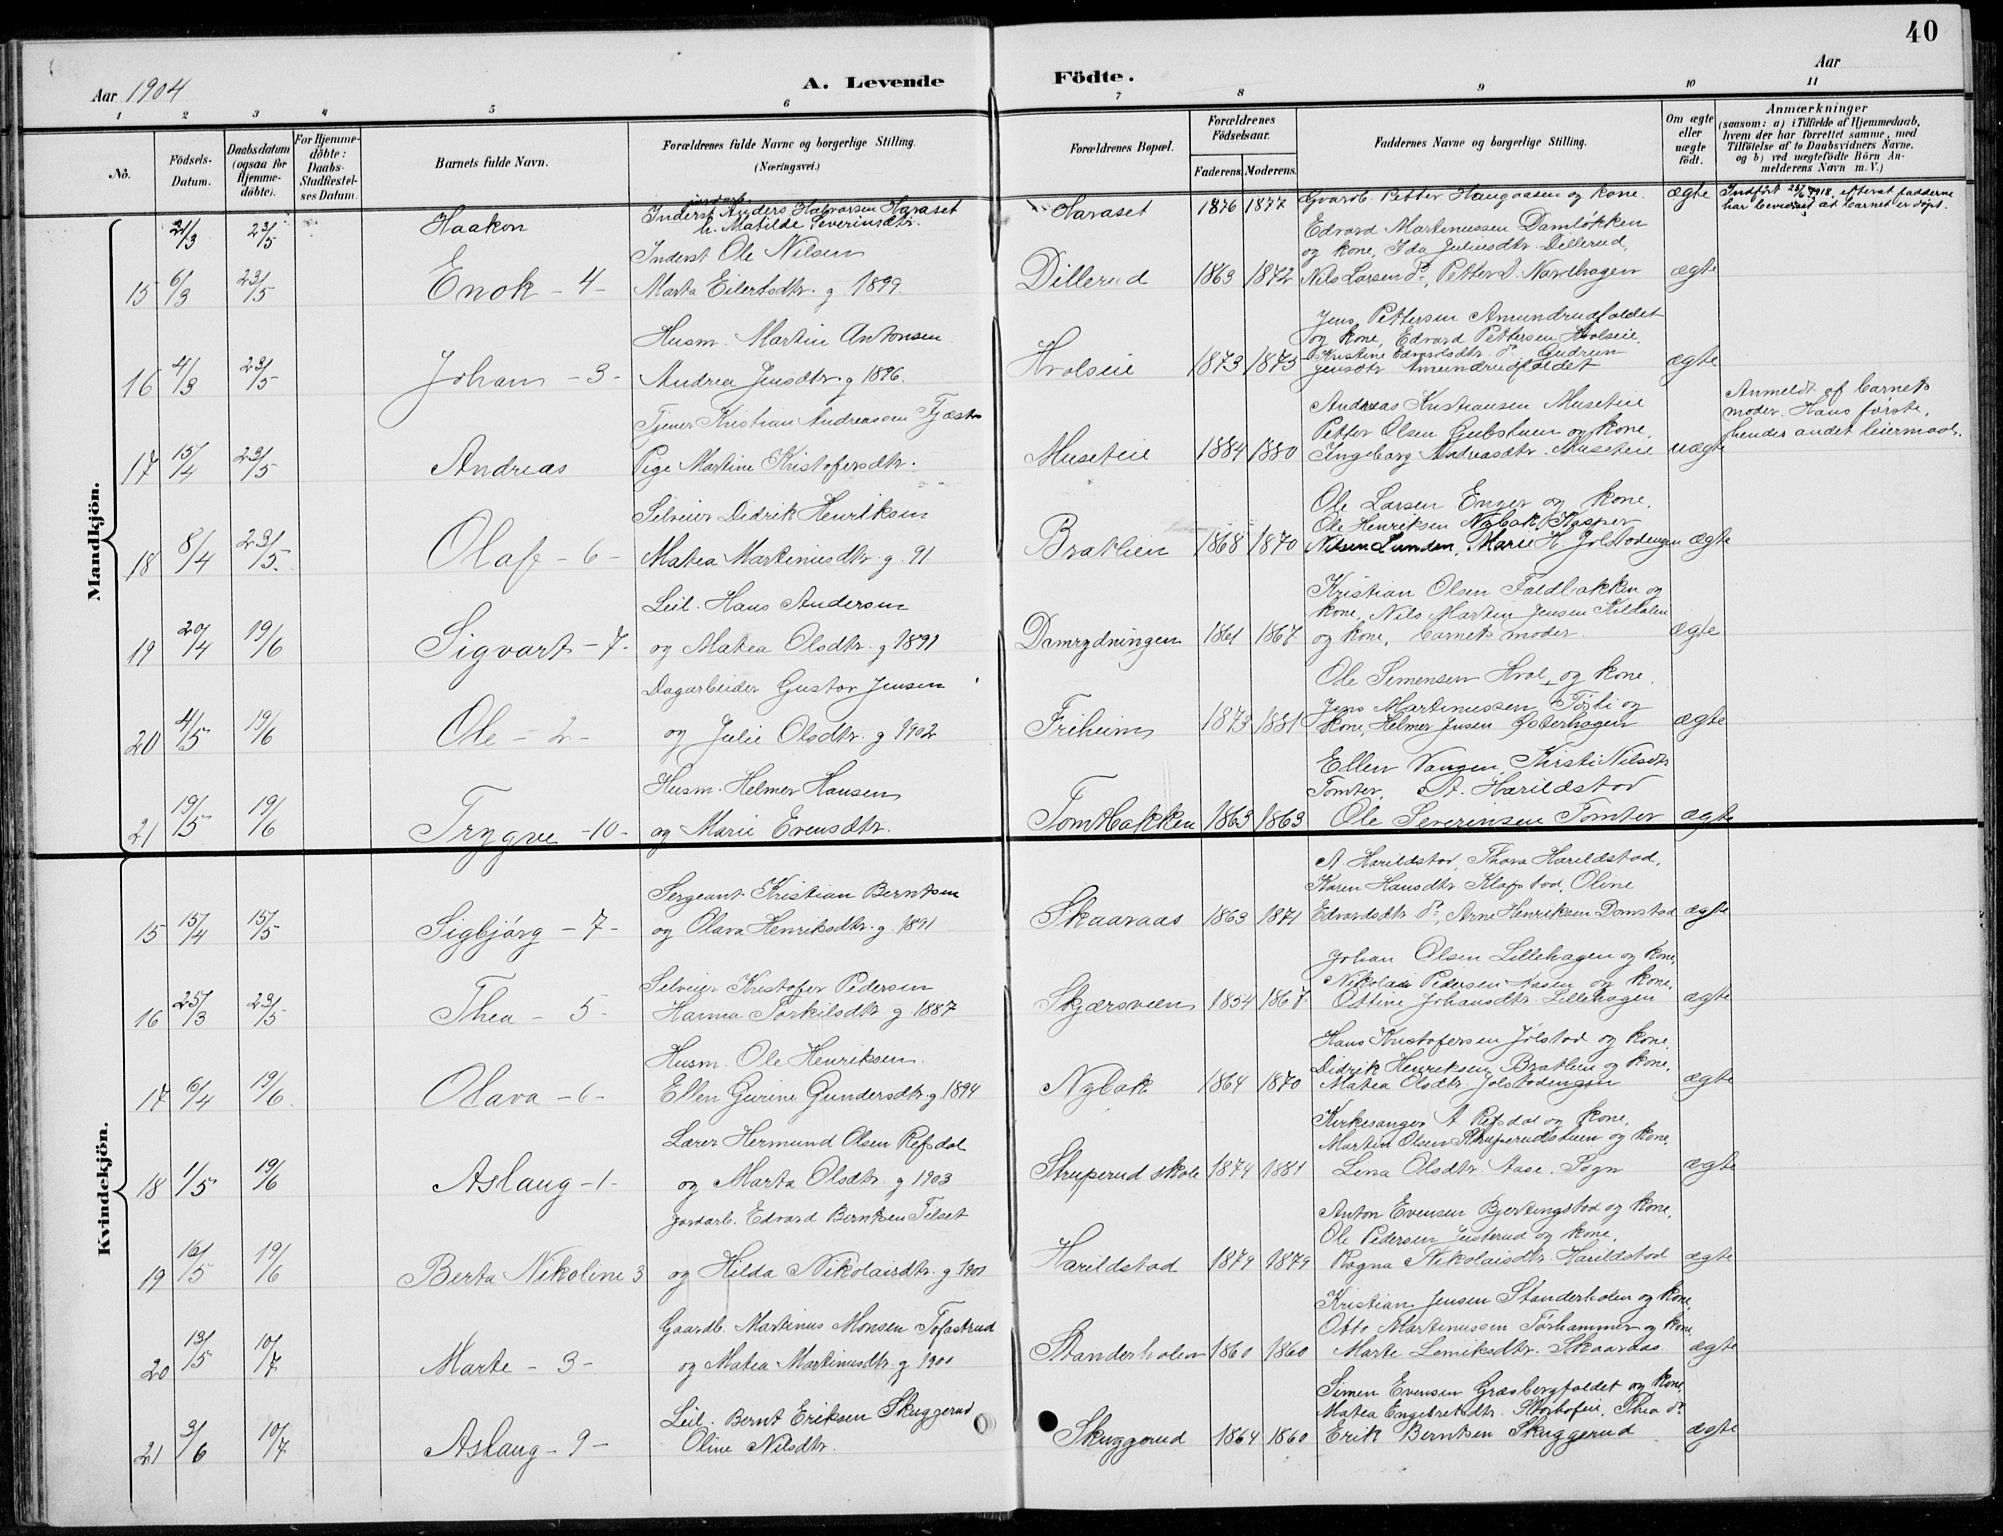 40
Aar 1904
A. Levende
Födte.
Aar
1 2 3 4 5 6 7 8 9 10 11
No.
Födsels-Datum.
Daabsdatum (ogsaa för Hjemme-döbte).
For Hjemme-döbte: Daabs-Stadfæstel-ses Datum.
Barnets fulde Navn.
Forældrenes fulde Navne og borgerlige Stilling. (Næringsvei.)
Forældrenes Bopæl.
Forældrenes Födselsaar.
Faderens. Moderens.
Faddernes Navne og borgerlige Stilling.
Om ægte eller uægte födt.
Anmærkninger
(saasom: a) i Tilfælde af Hjemmedaab,
hvem der har forrettet samme, med
Tilföielse af to Daabsvidners Navne.
og b) ved uægtefödte Börn An-
melderens Navn m. V.)
Mandkjön.
21/3 23/5 Haakon
Inderst Anders Halvorsen Haraset
h. Matilde Severinsdtr.
Haraset 1876 1877
Gvardb. Petter Haugaasen og kone. ægte
Indført 25/6 1918, efterat fadderne
har bevidnet at barnet er døpt.
15 6/3 23/5 Enok - 4 -
Inderst Ole Nilsen
Marta Eilertsdtr. g 1899.
Dillerud 1863 1872
Edvard Martinussen Damløkken
og kone, Ida Juliusdtr. Dillerud,
Nils Larsen do, Petter J. Navlhagen ægte
16 4/3 23/5 Johan - 3 -
Husm. Martin Antonsen
Andrea Jensdtr. g 1896.
Hvolseie 1873 1875
Jens Pettersen Amundrudfoldet
og kone, Edvard Pettersen Hvolseie,
Kristine Edvardsdtr. do. Gudrun
Jensdtr Amundrudfoldet ægte
17 15/4 23/5 Andreas
Tjener Kristian Andreasen Fjæst
Pige Martine Kristofersdtr.
Museteie 1884 1880
Andreas Kristiansen Museteie
Petter Olsen Gubstuen og kone,
Ingeborg Andreasdtr. Museteie uægte
Anmeldt af barnets
moder. Hans første,
hendes andet leiermaal.
18 8/4 23/5. Olaf - 6 -
Selveier Didrik Henriksen
Matea Martinusdtr. g. 91
Bratlien 1868 1870
Ole Larsen Enger og kone.
Ole Henriksen Nybak, Kasper
Nilsen Lunden, Marie H Jolstadengen ægte
19 20/4 19/6 Sigvart - 7 -
Leil. Hans Andersen
og Matea Olsdtr. g 1891
Damrydningen 1861 1867
Kristian Olsen Faldbakken og
kone, Nils Martin Jensen Kildalen
og kone, barnets moder. ægte
20 4/5 19/6 Ole - 2 -
Dagarbeider Gustav Jensen
og Julie Olsdtr. g 1902
Friheim 1873 1881
Ole Simensen Hvol og kone.
Jens Martinussen Törli og
kone, Helmer Jensen Østerhagen ægte
21 19/5 19/6 Trygve - 10 -
Husm. Helmer Hansen
og Marie Evensdtr.
Tomtbakken 1863 1863
Ellen Vangen, Kirsti Nilsdtr
Tomter, A. Harildstad
Ole Severinsen Tomter ægte
Kvindekjön.
15 15/4 15/5 Sigbjörg - 7 -
Sergeant Kristian Berntsen
og Olava Henriksdtr. g. 1891
Skaaraas 1863 1871
A. Harildstad, Thora Harildstad,
Karen Hansdtr Klafstad, Oline
Edvardsdtr do, Arne Henriksen Domstad ægte
16 25/3 23/5 Thea - 5 -
Selveier Kristofer Pedersen
Harma Torkilsdtr g 1887
Skjærsveen 1854 1867
Johan Olsen Lillehagen og kone,
Nikolai Pedersen Aasen og kone,
Ottine Johansdtr. Lillehagen ægte
17 6/4 19/6 Olava - 6 -
Husm. Ole Henriksen.
Ellen Gurine Gundersdtr. g 1894
Nybak 1864 1870
Hans Kristofersen Jolstad og kone,
Didrik Henriksen Bratlien og kone,
Matea Olsdtr. Jolstadengen ægte
18 1/5 19/6 Aslaug - 1 -
Lærer Hermund Olsen Refsdal
og Marta Olsdtr. g 1903
Struperud skole 1874 1881
Kirkesanger A Refsdal og kone,
Martin Olsen Struperudstuen og kone,
Lina Olsdtr. Aase. Sogn ægte
19 16/5 19/6 Berta Nikoline 3
Jordarb. Edvard Berntsen Tilset
og Hilda Nikolaisdtr. g 1901
Harildstad 1879 1879
Anton Evensen Bjertingstad og kone,
Ole Pedersen Justerud og kone,
Ragna Nikolaisdtr. Harildstad ægte
20 13/5 10/7 Marte - 3 -
Gaardb. Martinus Monsen Tofastrud
og Matea Martinusdtr. g 1901
Standerholen 1860 1860
Kristian Jensen Standerholen og kone,
Otto Martinussen Törhammer og kone,
Marte Lemiksdtr. Skaaraas ægte
21 3/6 10/7 Aslaug - 9 -
Leil. Bernt Eriksen Skuggerud
Oline Nilsdtr.
Skuggerud 1864 1860
Simen Evensen Græsbergfaldet og kone,
Matea Engebretsdtr. Thea do
Erik Berntsen Skuggerud ægte